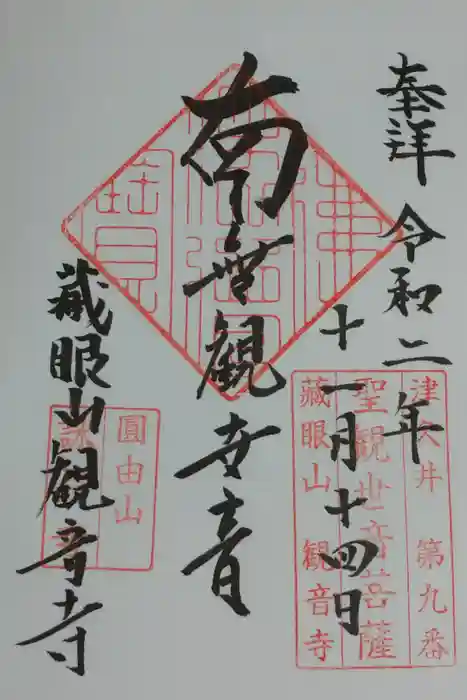 奉拝 令和二年
十一月十四日
南無観世音
蔵眼山観音寺
津久井 第九番
聖観世音菩薩
蔵眼山 観音寺
圓由山